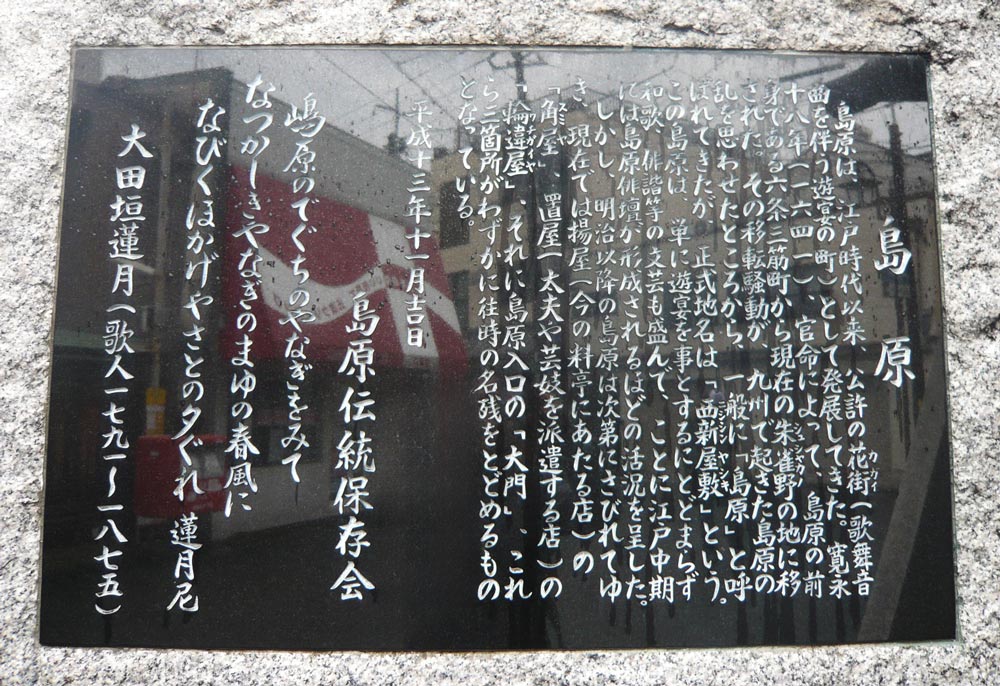 島原
島原は、江戸時代以来、公許の花街(歌舞音
カガイ
曲を伴う遊宴の町)として発展してきた。寛永
十八年(一六四一)、官命によって、島原の前
身である六条三筋町から現在の朱雀野の地に移
シュジャカノ
された。その移転騒動が、九州で起きた島原の
乱を思わせたところから、一般に「島原」と呼
ばれてきたが、正式地名は「西新屋敷」という。
ニシシンヤシキ
この島原は、単に遊宴を事とするにとどまらず
和歌、俳諧等の文芸も盛んで、ことに江戸中期
には島原俳壇が形成されるほどの活況を呈した。
しかし、明治以降の島原は次第にさびれてゆ
き、現在では揚屋(今の料亭にあたる店)の
「角屋」、置屋(太夫や芸妓を派遣する店)の
スミヤ
「輪違屋」、それに島原入口の「大門」、これ
ワチガイヤ
ら三箇所がわずかに往時の名残をとどめるもの
となっている。
平成十三年十一月吉日
島原伝統保存会
嶋原のでぐちのやなぎをみて
なつかしきやなぎのまゆの春風に
なびくほかげやさとの夕ぐれ 蓮月尼
大田垣蓮月(歌人一七九一〜一八七五)